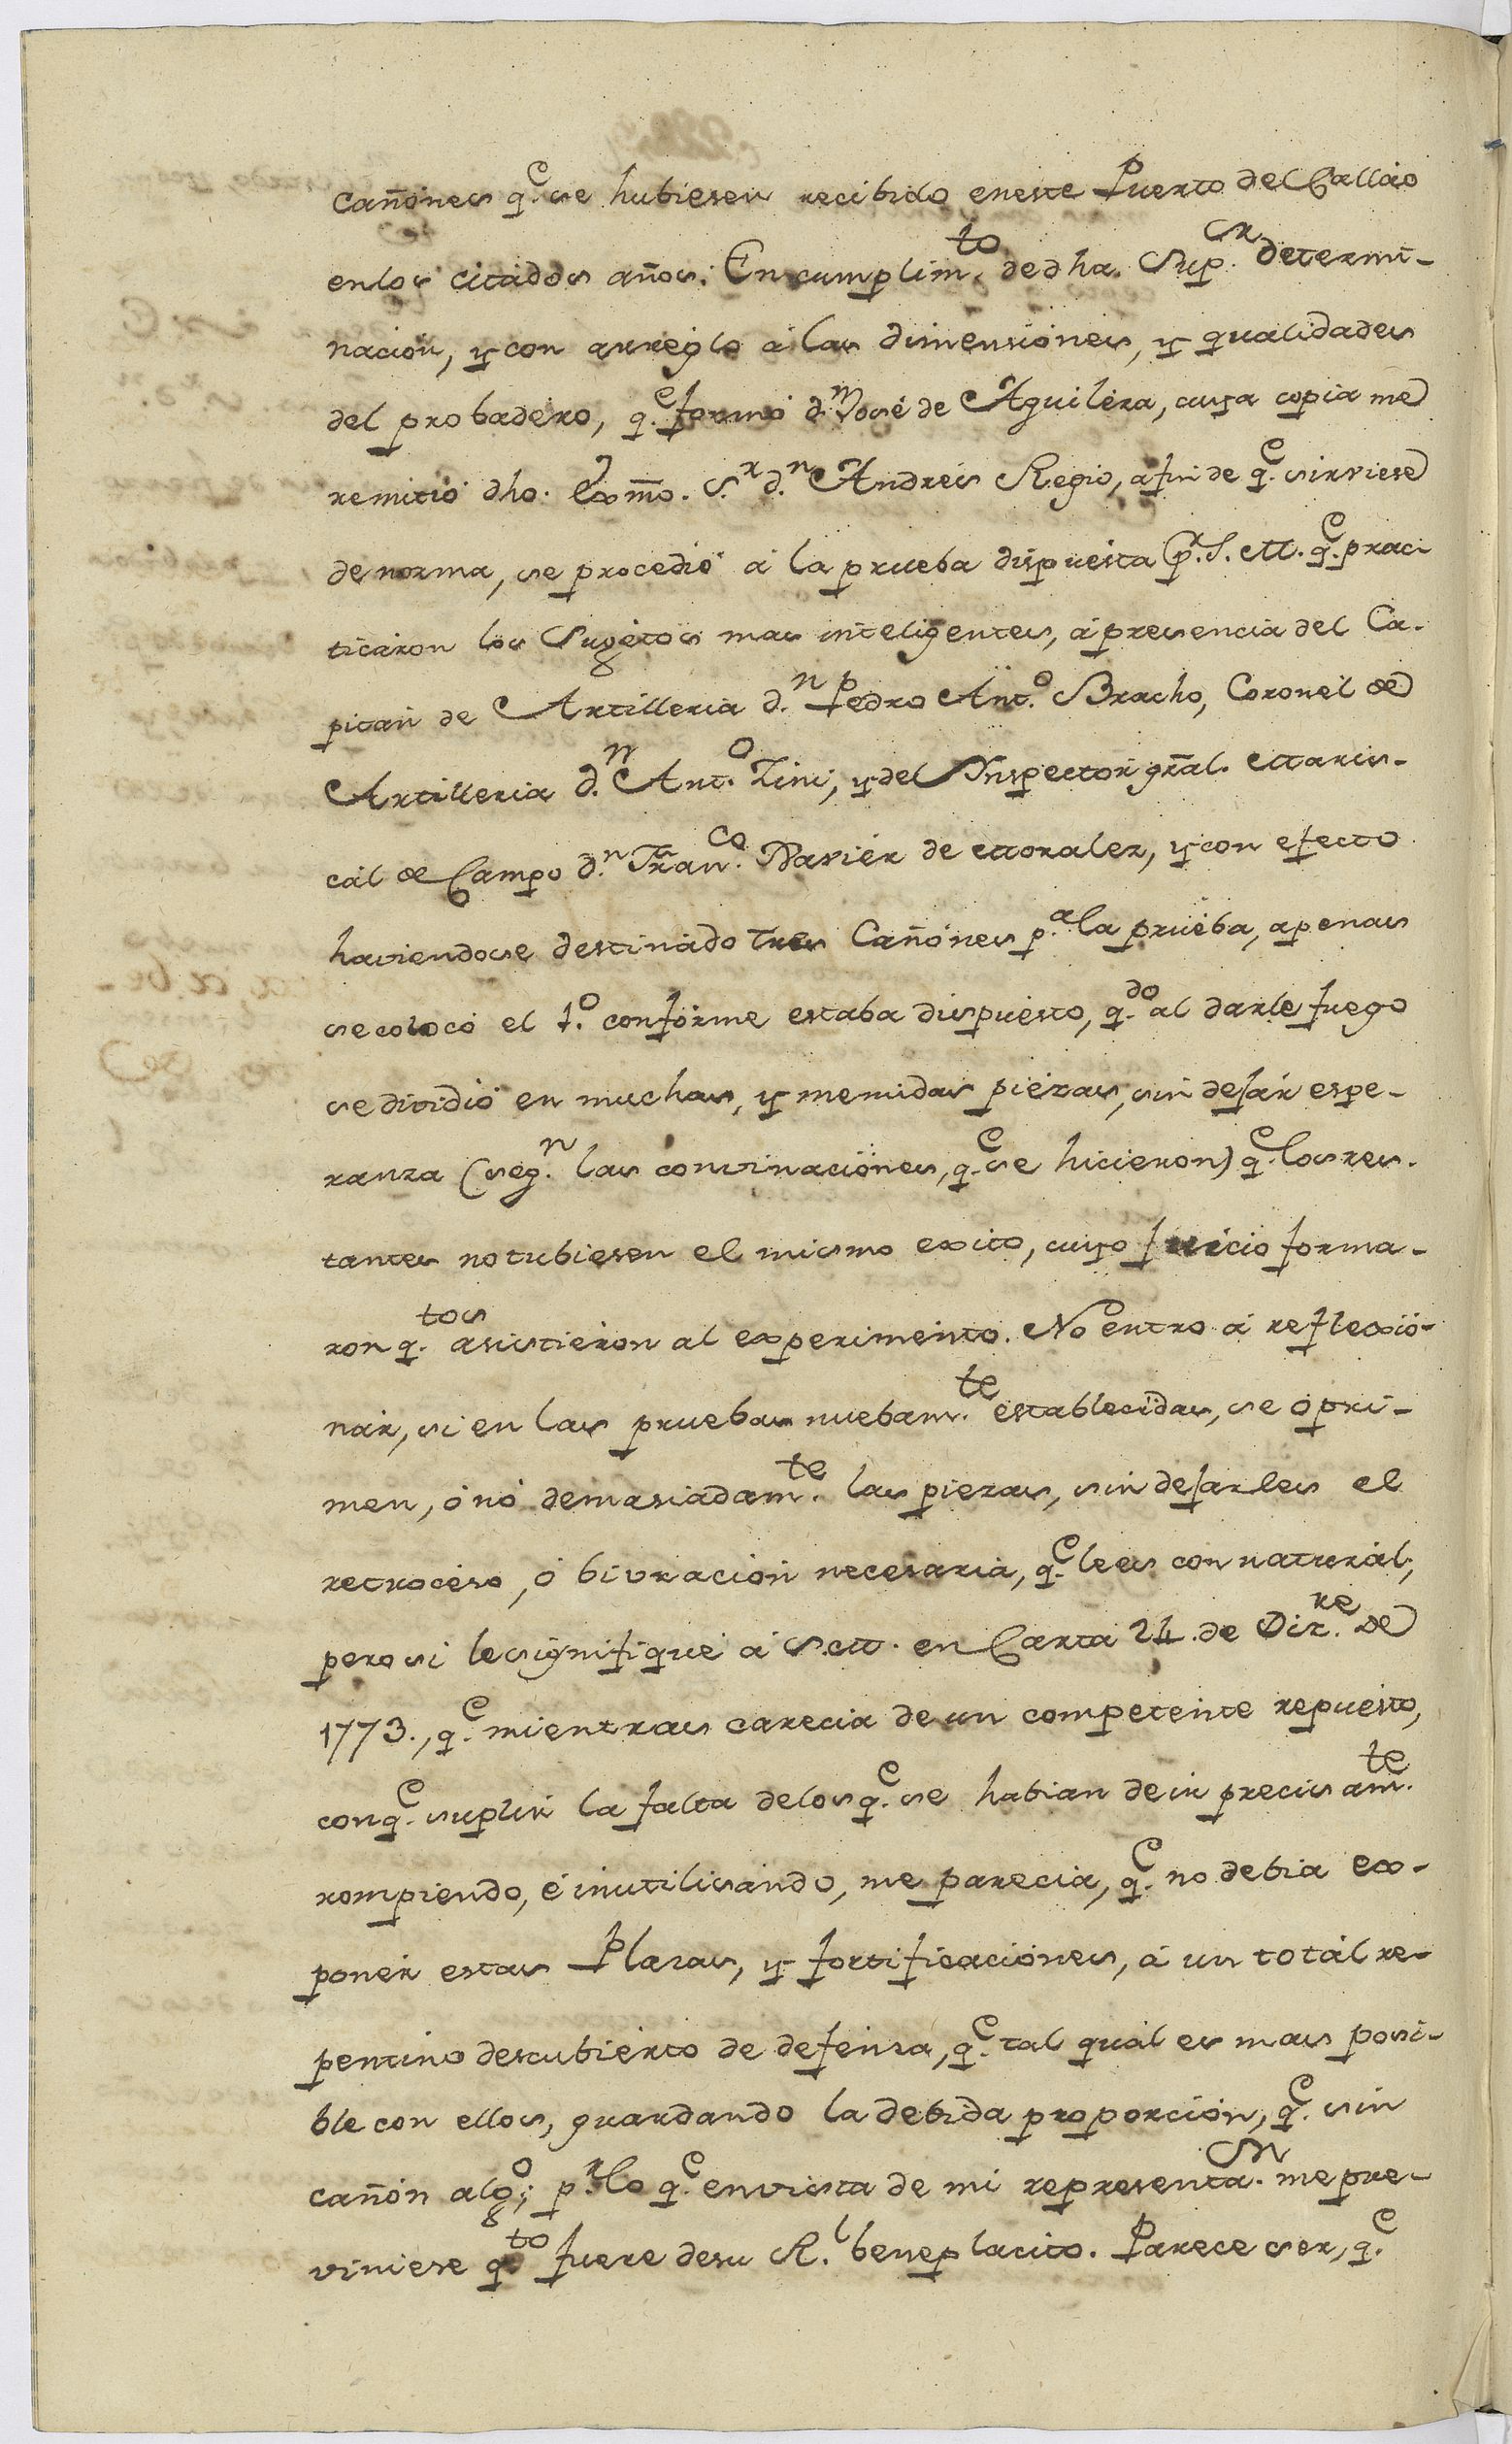 cañones q.e se hubiesen recibido eneste Puerto del Callao
enlos citados años: En cumplim.to de dha. Sup.or determi-
nacion, y con arreglo á las dimensiones, y qualidades
del probadero, q.e formó d.n José de Aguilera, cuya copia me
remitió dho. Exmo. S.r d.n Andrés Regio, afin de q.e sirviese
de norma, se procedió á la prueba dispuesta p.r S. M. q.e prac-
ticaron los Sugetos mas inteligentes, á presencia del Ca-
pitan de Artilleria d.n Pedro Ant.o Bracho, Coronel de
Artilleria d.n Ant.o Zini, y del Ynspector gral. Maris-
cál de Campo d.n Fran.co Xavier de Morales, y con efecto
haviendose destinado tres Cañones p.a la prueba, apenas
se colocó el 1.o conforme estaba dispuesto, q.do al darle fuego
se dividió en muchas, y menudas piezas, sin dejar espe-
ranza (seg.n las convinaciones, q.e se hicieron) q.e los res-
tantes no tubiesen el mismo exito, cuyo juicio forma-
ron q.tos asistieron al experimento. No entro á reflexio-
nar, si en las pruebas nuebam.te establecidas, se opri-
men, ó nó demasiadam.te las piezas, sin dejarles el
retroceso, ó bivracion necesaria, q.e les es connatural;
pero si le signifiqué á S. M. en Carta 24. de Diz.re de
1773., q.e mientras carecia de un competente repuesto,
conq.e suplir la falta delos q.e se habian de ir precisam.te
rompiendo, é inutilisando, me parecia, q.e no debia ex-
poner estas Plazas, y fortificaciones, á un totál re-
pentino descubierto de defensa, q.e tal quál es mas posi-
ble con ellos, guardando la debida proporcion, q.e sin
cañon alg.o; p.r lo q.e en vista de mi representa.on me pre-
viniese q.to fuere desu R.l beneplacito. Parece ser, q.e